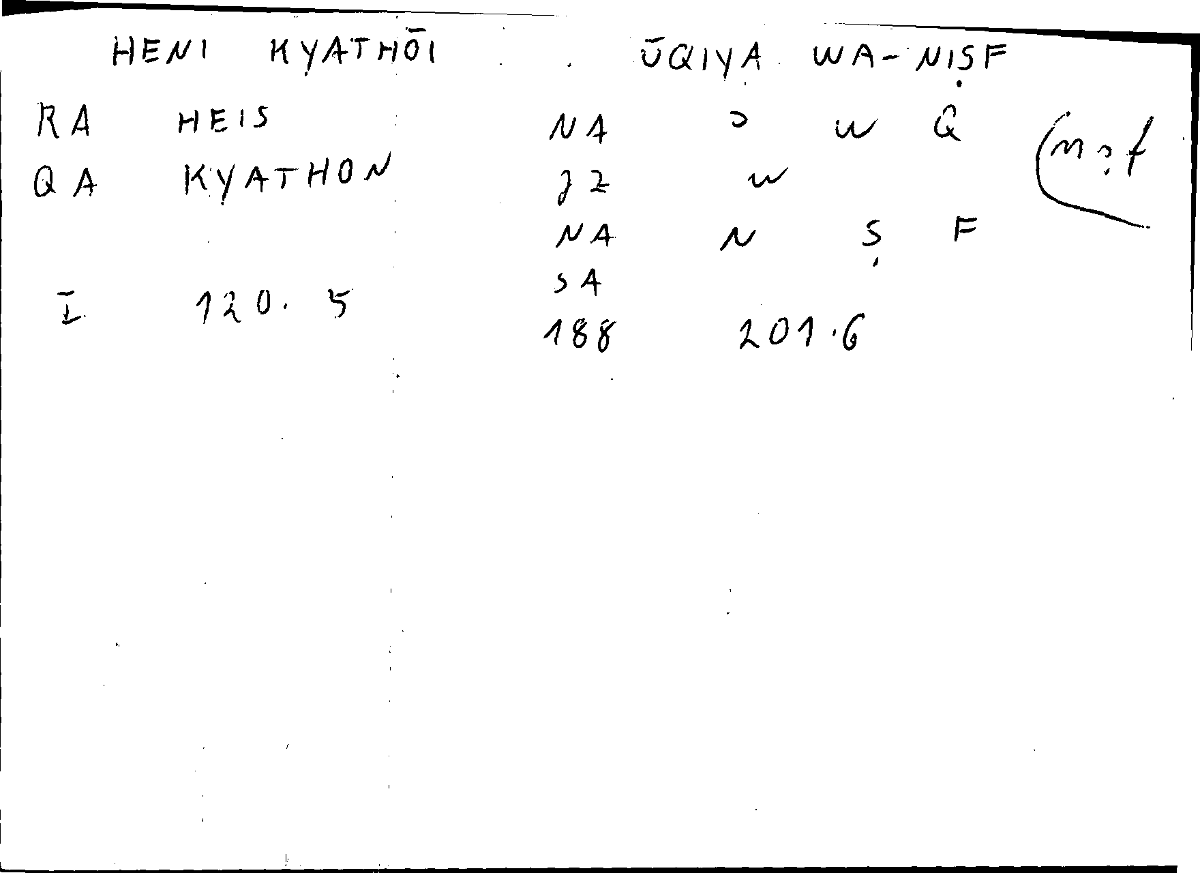 HENI KYATHŌI ŪQIYA WA-NIṢF
RA HEIS NA ʾ W Q
QA KYATHON JZ W
NA N Ṣ F
SA
I 120.5 188 201.6